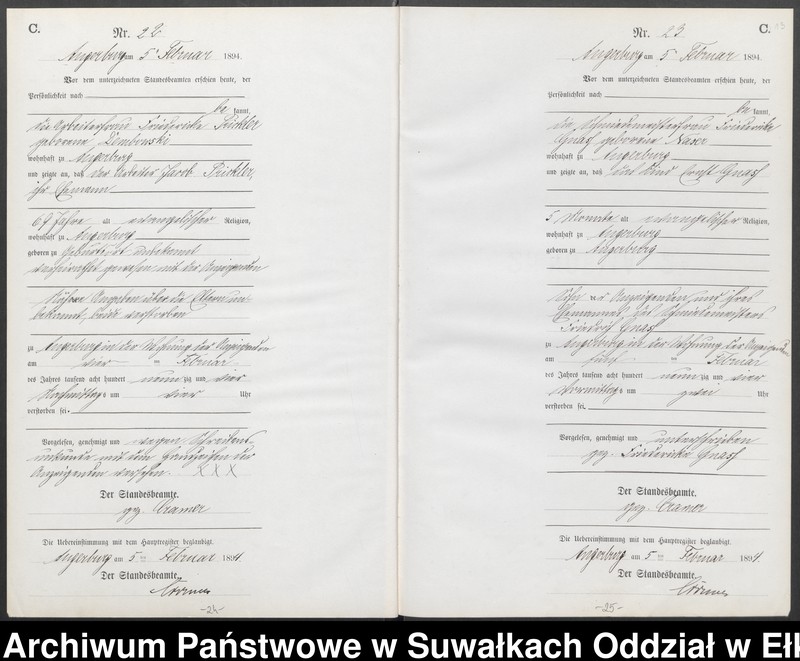 C.
Nr. 22
Angerburg am 5ᵗ Februar 1894.
Vor dem unterzeichneten Standesbeamten erschien heute, der
Persönlichkeit nach
be kannt,
die Arbeiterfrau Friederike
geborene
wohnhaft zu Angerburg
und zeigte an, daß der Arbeiter Jacob
ihr Ehemann
67 Jahre alt evangelischer Religion,
wohnhaft zu Angerburg
geboren zu Geburtsort unbekannt
verheirathet gewesen mit der Anzeigenden
Nähere Angaben über die Eltern un-
bekannt, beide verstorben
zu Angerburg in der Wohnung der Anzeigenden
am vier ten Februar
des Jahres tausend acht hundert neun zig und vier
Nachmittags um vier Uhr
verstorben sei.
Vorgelesen, genehmigt und wegen Schreibens-
unkunde mit dem Handzeichen der
Anzeigenden versehen. XXX
Der Standesbeamte.
gez. Cramer
Die Uebereinstimmung mit dem Hauptregister beglaubigt.
Angerburg am 5 ten Februar 1894.
Der Standesbeamte.
Cramer
-24-
C.
Nr. 23
Angerburg am 5 Februar 1894.
Vor dem unterzeichneten Standesbeamten erschien heute, der
Persönlichkeit nach
be kannt,
die Schmiedemeisterfrau Friederike
Gnass geborene
wohnhaft zu Angerburg
und zeigte an, daß das Kind Ernst Gnass
5 Monate alt evangelischer Religion,
wohnhaft zu Angerburg
geboren zu Angerburg
Sohn der Anzeigenden und ihres
Ehemannes des Schmiedemeisters
Friedrich Gnass
zu Angerburg in der Wohnung der Anzeigenden
am fünf ten Februar
des Jahres tausend acht hundert neun zig und vier
Vormittags um zwei Uhr
verstorben sei.
Vorgelesen, genehmigt und unterschrieben
gez. Friederike Gnass
Der Standesbeamte.
gez. Cramer
Die Uebereinstimmung mit dem Hauptregister beglaubigt.
Angerburg am 5 ten Februar 1894.
Der Standesbeamte.
Cramer
-25-
Archiwum Państwowe w Suwałkach Oddział w Ełk